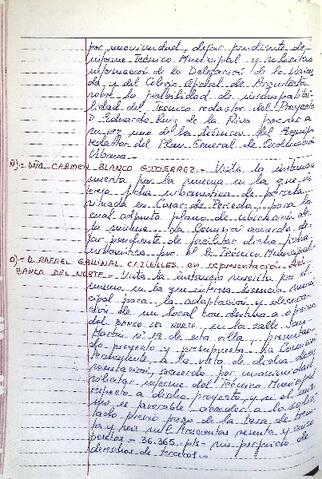 por unanimidad, dejar pendiente de
informe Técnico Municipal y solicitar
información de la Delegación de la Vivienda
y del Colegio Oficial de Arquitectos
sobre la posibilidad de incompatibi-
lidad del Técnico redactor del Proyecto
D. Eduardo Ruiz de la Riva por ser
uno de los Técnicos del Equipo
redactor del Plan General de Ordenación
Urbana.-
Ñ).- DÑA. CARMEN BLANCO GUTIERREZ.- Vista la instancia
suscrita por la misma en la que in-
teresa ficha urbanística de parcela
situada en Casar de Periedo, para lo
cual adjunta plano de ubicación de
la misma. La Comisión acuerda de-
jar pendiente de facilitar dicha ficha
urbanística por el Técnico Municipal.
O).- D. RAFAEL CAÑIZALES en representación del
BANCO DEL NORTE.- Vista la instancia suscrita por el
mismo en la que interesa licencia muni-
cipal para la adaptación y decora-
ción de un local con destino a oficina
del BANCO DEL NORTE, en la calle San
Martín nº 19 de esta villa, presentan-
do proyecto y presupuesto. La Comisión
Permanente, a la vista de dicha docu-
mentación, acuerda por unanimidad
solicitar informe del Técnico Municipal
respecto a dicho proyecto, y si el mis-
mo es favorable acceder a lo solici-
tado previo pago de la tasa de trein-
ta y seis mil trescientas sesenta y cinco
pesetas = 36.365 pts = sin perjuicio de
derechos de terceros.-